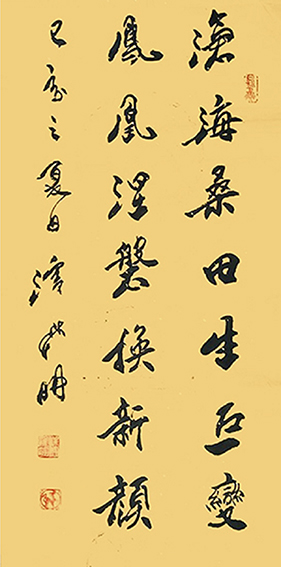 滄海桑田生巨變
鳳凰涅槃換新顏
己亥之夏月